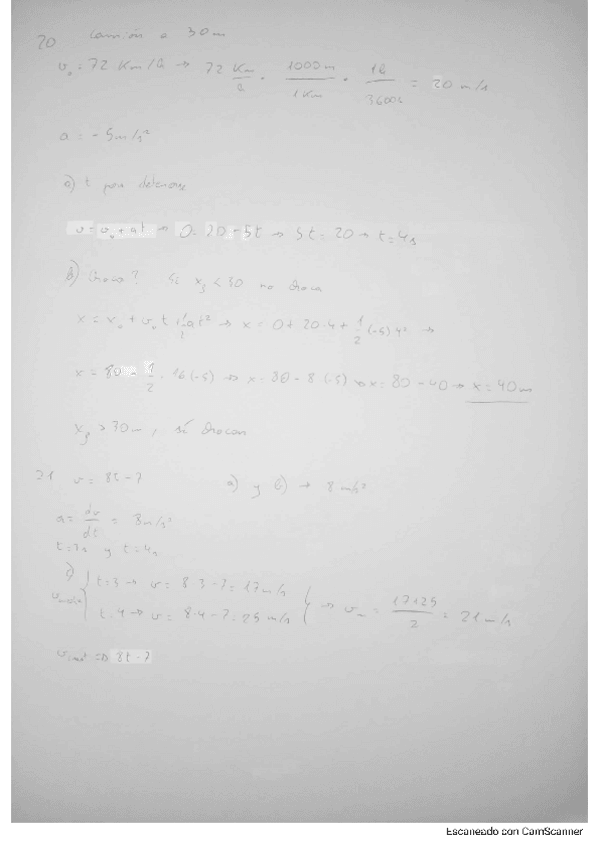 20 camión a 30m
v₀ = 72 Km/h → 72 Km/h · 1000m/1Km · 1h/3600s = 20 m/s
a = -5m/s²
a) t para detenerse
v = v₀ + at → 0 = 20 - 5t → 5t = 20 → t = 4s
b) Choca? Si x_f < 30 no choca
x = x₀ + v₀t + 1/2 at² → x = 0 + 20·4 + 1/2 (-5) 4² →
x = 80 - 1/2 · 16 (-5) → x = 80 - 8 (-5) → x = 80 - 40 → x = 40m
x_f > 30m, sí chocan
21 v = 8t - 7 a) y b) → 8 m/s²
a = dv/dt = 8m/s²
t = 3s y t = 4s
c) v media { t = 3 → v = 8·3 - 7 = 17 m/s
t = 4 → v = 8·4 - 7 = 25 m/s } → v_m = 17+25/2 = 21 m/s
v inst ⇒ 8t - 7
Escaneado con CamScanner